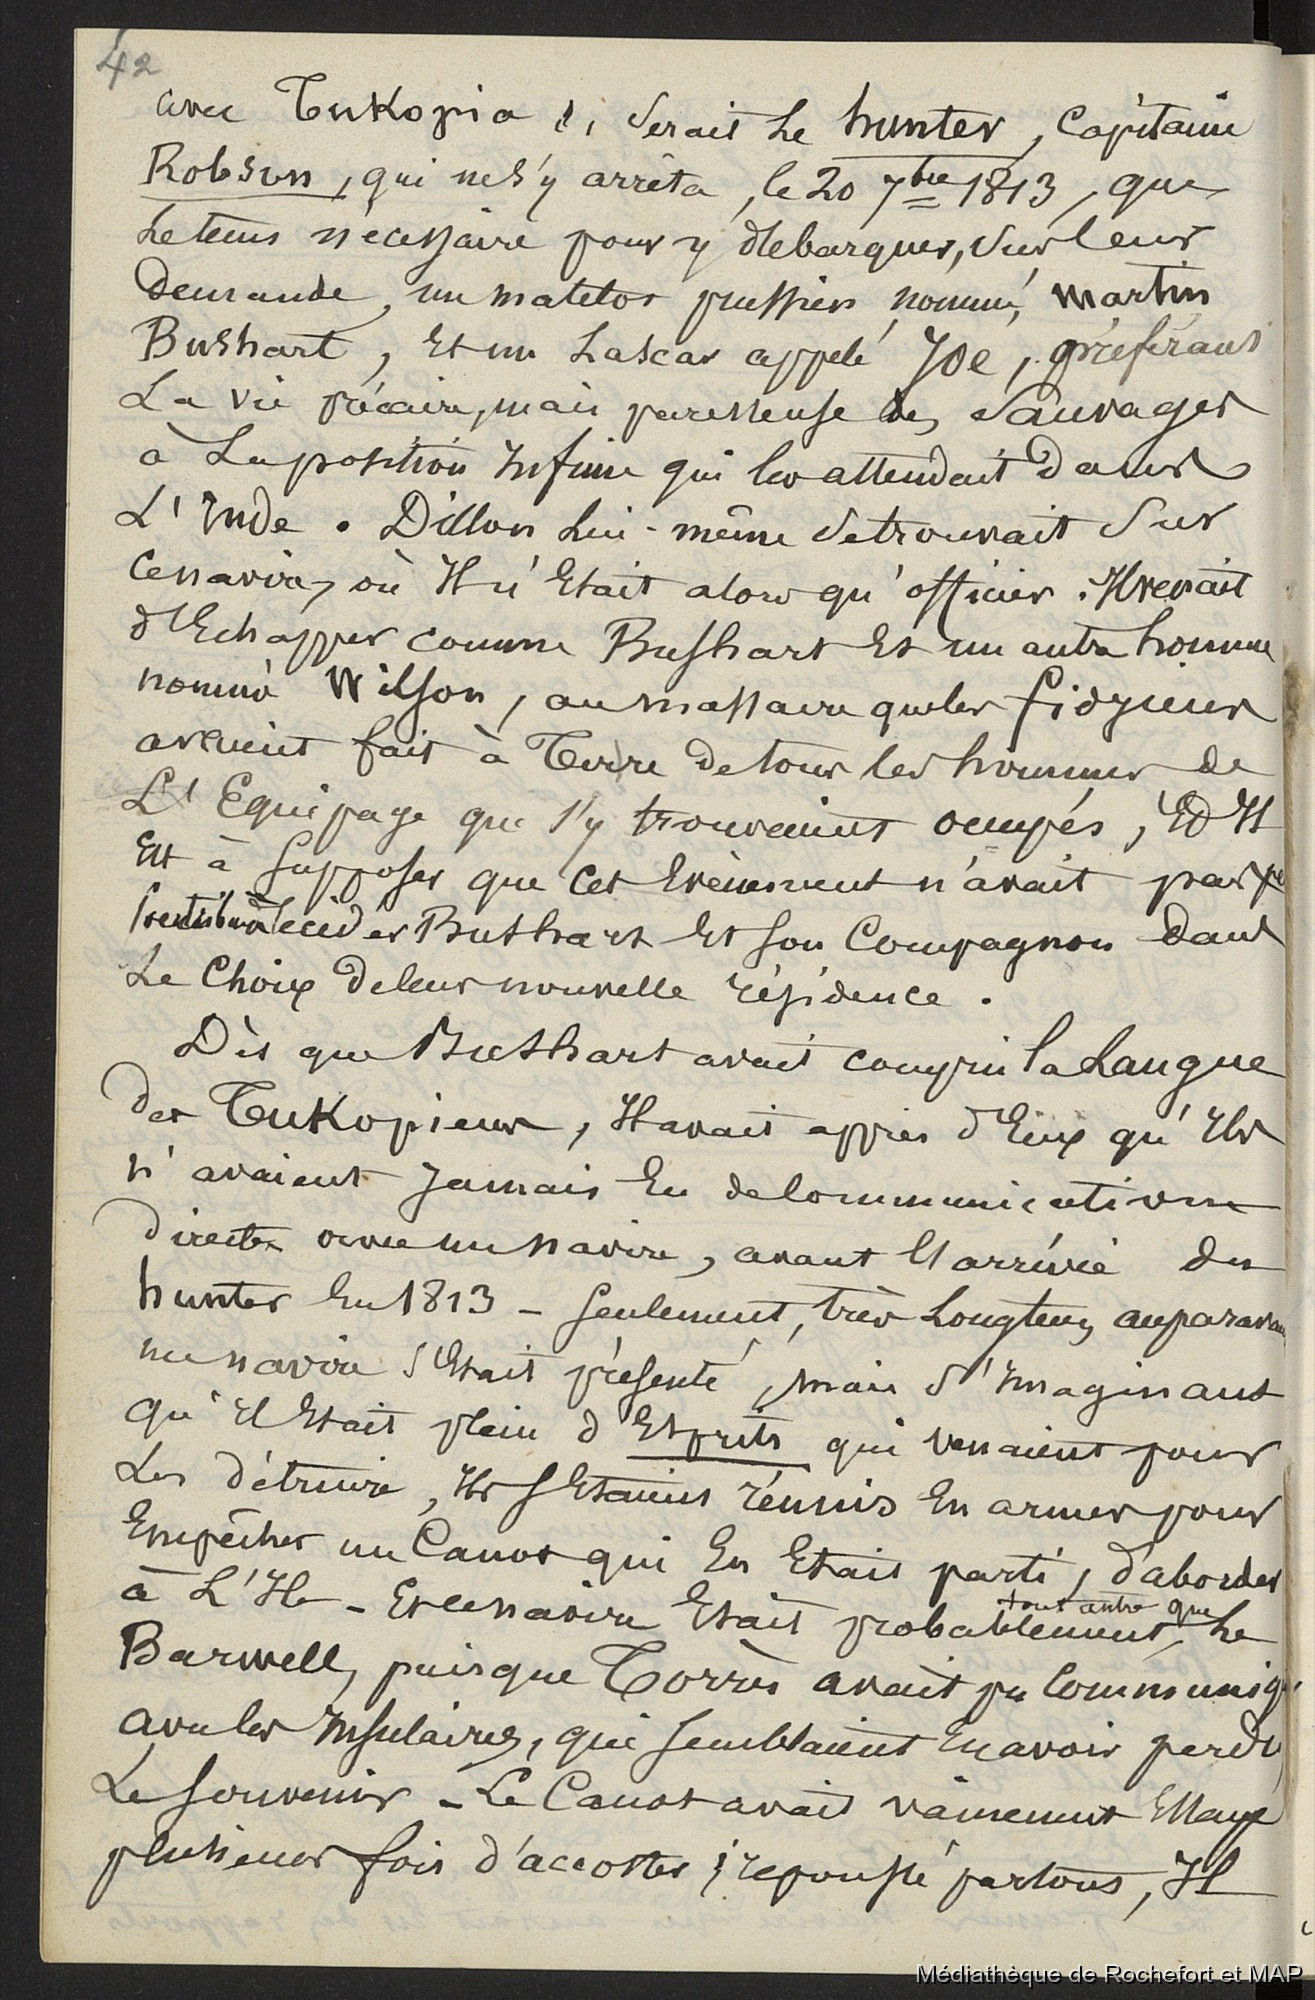 42
avec Tukopia, serait Le hunter, Capitaine
Robson, qui ne s'y arrêta, le 20 7bre 1813, que
Le tems nécessaire pour y débarquer, sur leur
Demande, un matelot prussien nommé Martin
Bushart, Et un Lascar appelé Joe, préférant
La vie précaire, mais paresseuse des Sauvages
à La position Infime qui les attendait dans
L'Inde. Dillon Lui-même se trouvait sur
ce navire, où Il n'Etait alors qu'officier. Il venait
d'Echapper comme Bushart Et un autre homme
nommé Wilson, au massacre que les fidgiens
avaient fait à Terre de tous les hommes de
L'Equipage qui s'y trouvaient occupés, Et Il
Est à supposer que cet Evènement n'avait pas pe
décider Bushart Et son Compagnon dans
Le Choix de leur nouvelle résidence.
Dès que Bushart avait compris la Langue
des Tukopiens, Il avait appris d'Eux qu'Ils
n'avaient Jamais Eu de Communications
directes avec un navire, avant l'arrivée du
hunter En 1813 - seulement, très Longtems auparavant
un navire s'Etait présenté, mais s'Imaginant
qu'Il Etait plein d'Esprits qui venaient pour
Les détruire, Ils s'Etaient réunis En armes pour
Empêcher un Canot qui En Etait parti, d'aborder
à L'Ile - Et ce navire Etait probablement tout autre que Le
Barwell, puisque Torrès avait pu Communiqu
avec les Insulaires, qui semblaient En avoir perdu
Le Souvenir - Le Canot avait vainement Essayé
plusieurs fois d'accoster ; repoussé partout, Il
Médiathèque de Rochefort et MAP